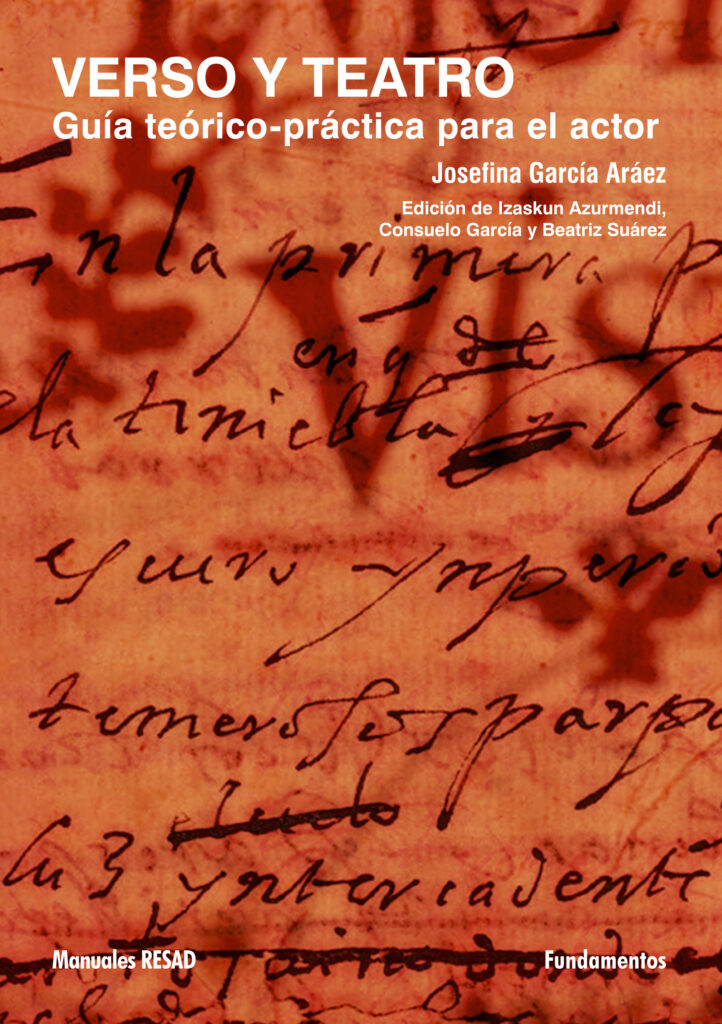 VERSO Y TEATRO
Guía teórico-práctica para el actor
Josefina García Aráez
Edición de Izaskun Azurmendi,
Consuelo García y Beatriz Suárez
En la primera p
en q de
la tiniebla
VIS
escuro ynperio
temerosos parpa
luz yntercadente
Manuales RESAD
Fundamentos